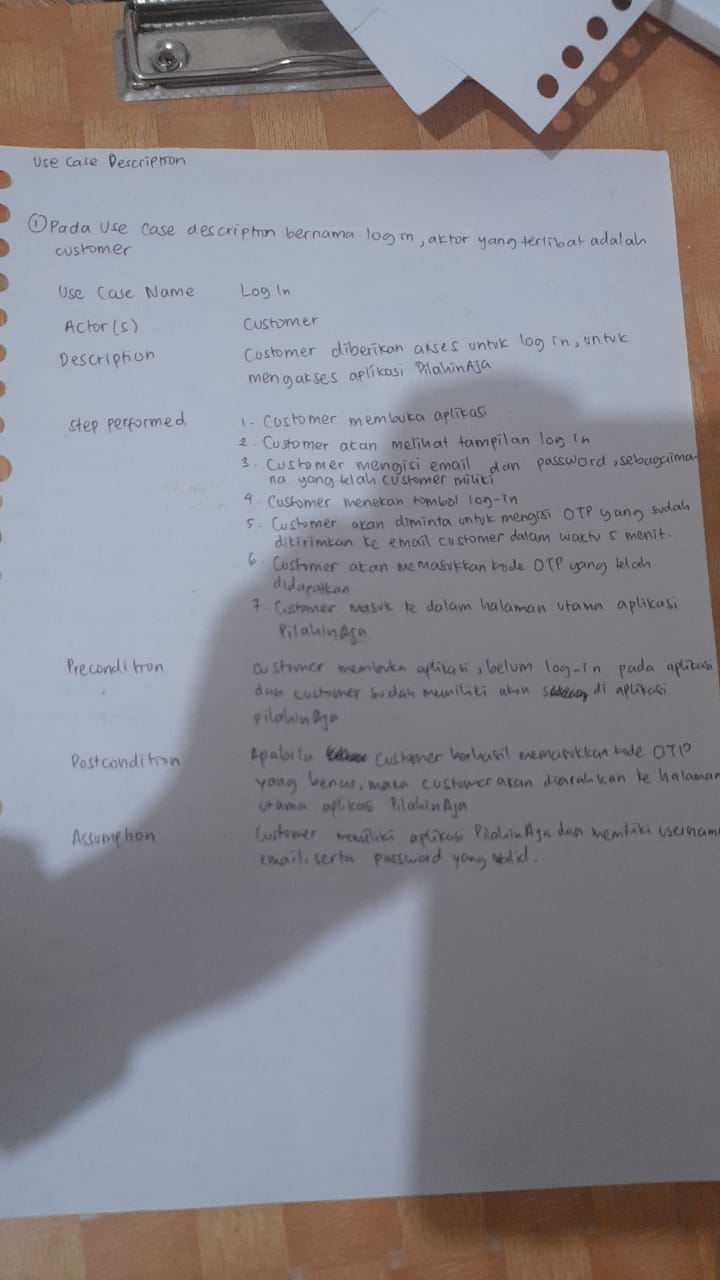 Use Case Description
① Pada Use Case description bernama log in, aktor yang terlibat adalah
customer
Use Case Name Log In
Actor(s) Customer
Description Customer diberikan akses untuk log in, untuk
mengakses aplikasi PilahinAja
Step performed 1. Customer membuka aplikasi
2. Customer akan melihat tampilan log In
3. Customer mengisi email dan password, sebagaima-
na yang telah customer miliki
4. Customer menekan tombol log-In
5. Customer akan diminta untuk mengisi OTP yang sudah
dikirimkan ke email customer dalam waktu 5 menit.
6. Customer akan memasukkan kode OTP yang telah
didapatkan
7. Customer masuk ke dalam halaman utama aplikasi
PilahinAja
Precondition customer membuka aplikasi, belum log-in pada aplikasi
dan customer sudah memiliki akun di aplikasi
PilahinAja
Postcondition Apabila customer berhasil memasukkan kode OTP
yang benar, maka customer akan diarahkan ke halaman
utama aplikasi PilahinAja
Assumption Customer memiliki aplikasi PilahinAja dan memiliki username
email, serta password yang valid.